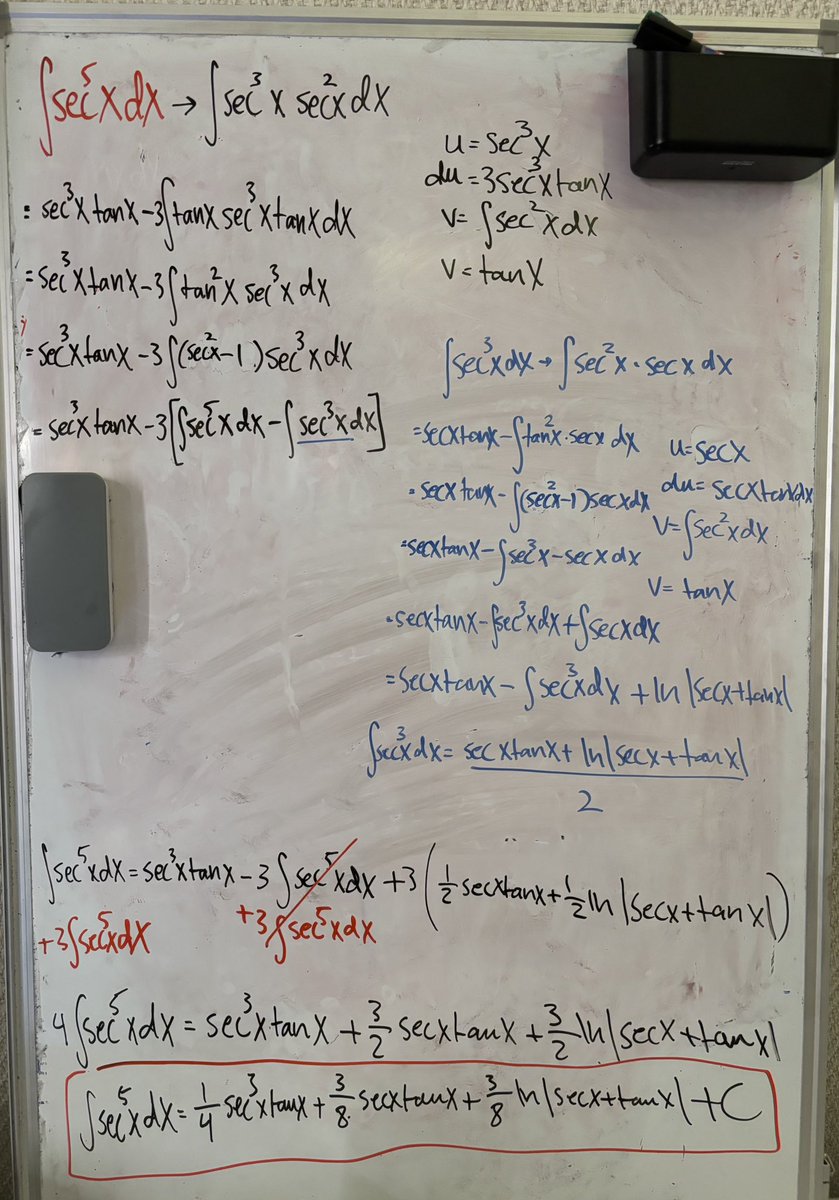 ∫sec⁵x dx → ∫sec³x sec²x dx
u = sec³x
du = 3sec³x tanx
v = ∫sec²x dx
v = tanx
= sec³x tanx - 3∫tanx sec³x tanx dx
= sec³x tanx - 3∫tan²x sec³x dx
= sec³x tanx - 3∫(sec²x - 1)sec³x dx
= sec³x tanx - 3[∫sec⁵x dx - ∫sec³x dx]
∫sec³x dx → ∫sec²x · secx dx
u = secx
du = secx tanx dx
v = ∫sec²x dx
v = tanx
= secx tanx - ∫tan²x · secx dx
= secx tanx - ∫(sec²x - 1)secx dx
= secx tanx - ∫sec³x - secx dx
= secx tanx - ∫sec³x dx + ∫secx dx
= secx tanx - ∫sec³x dx + ln|secx + tanx|
∫sec³x dx = secx tanx + ln|secx + tanx|
2
∫sec⁵x dx = sec³x tanx - 3∫sec⁵x dx + 3(1/2 secx tanx + 1/2 ln|secx + tanx|)
+3∫sec⁵x dx +3∫sec⁵x dx
4∫sec⁵x dx = sec³x tanx + 3/2 secx tanx + 3/2 ln|secx + tanx|
∫sec⁵x dx = 1/4 sec³x tanx + 3/8 secx tanx + 3/8 ln|secx + tanx| + C